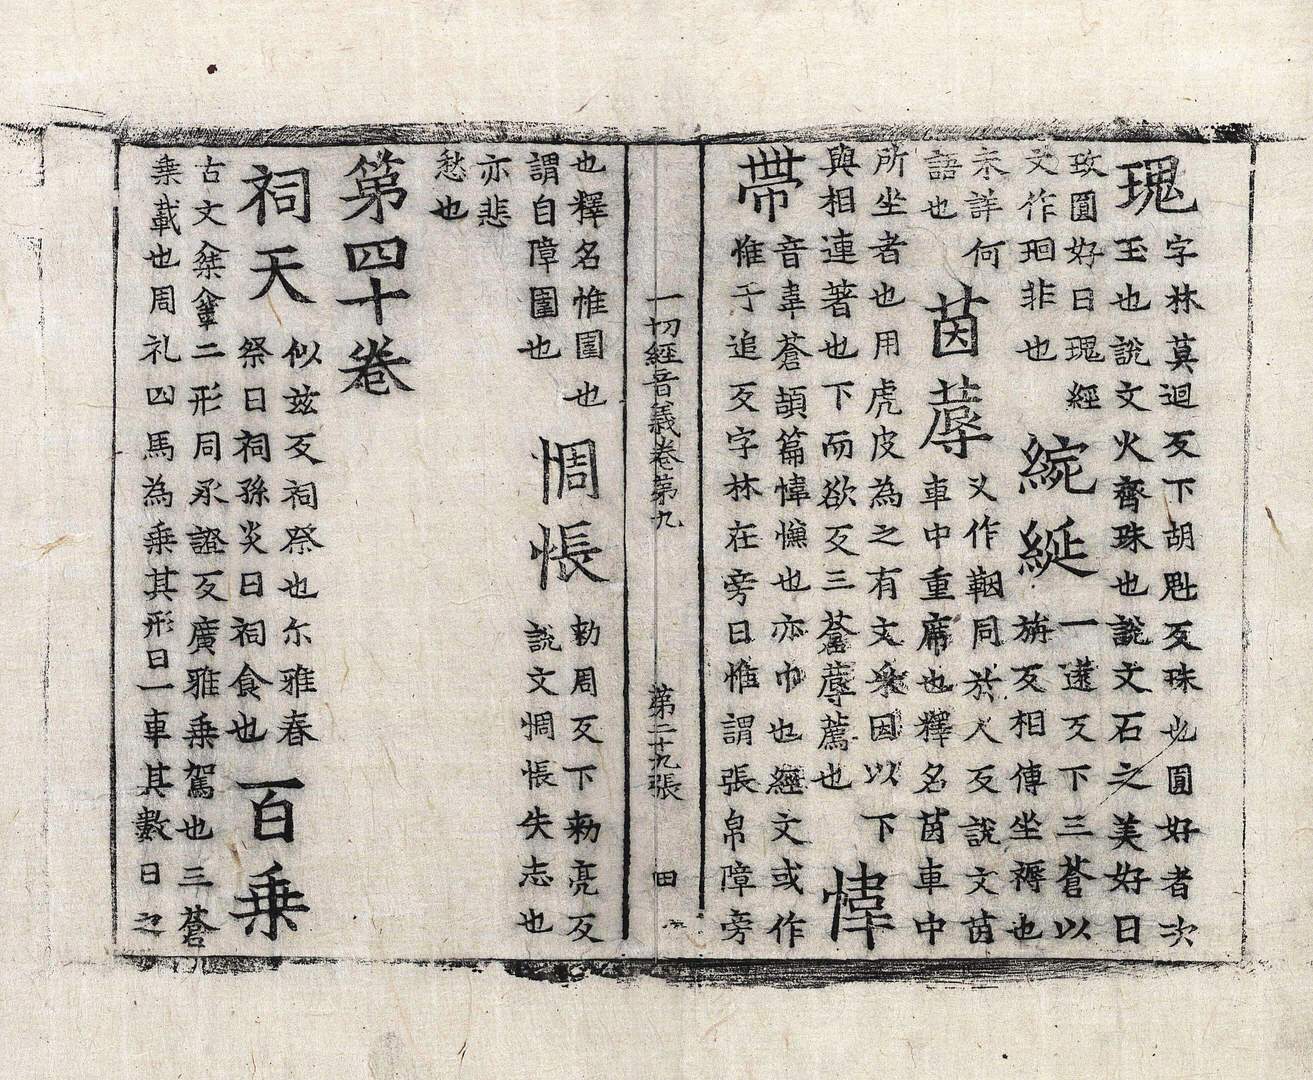 瑰
字林莫迴反下胡魁反珠也圓好者次
玉也說文火齊珠也說文石之美好曰
玫圓好曰瑰經
文作非也
綩綖
一遠反下三蒼以
旃反相傳坐褥也
未詳何
語也
茵蓐
又作鞇同於人反說文茵
車中重席也釋名茵車中
所坐者也用虎皮為之有文采因以下
與相連著也下而欲反三蒼蓐薦也
幃
帶
音韋蒼頡篇幃幰也亦巾也經文或作
惟于追反字林在旁曰惟謂張帛障旁
一切經音義卷第九　第二十九張　田
也釋名惟圍也
謂自障圍也
惆悵
勑周反下勑亮反
說文惆悵失志也
亦悲
愁也
第四十卷
祠天
似兹反祠祭也尒雅春
祭曰祠孫炎曰祠食也
百乗
古文二形同承證反廣雅乗駕也三蒼
椉載也周礼四馬為乗其形曰一車其數曰之